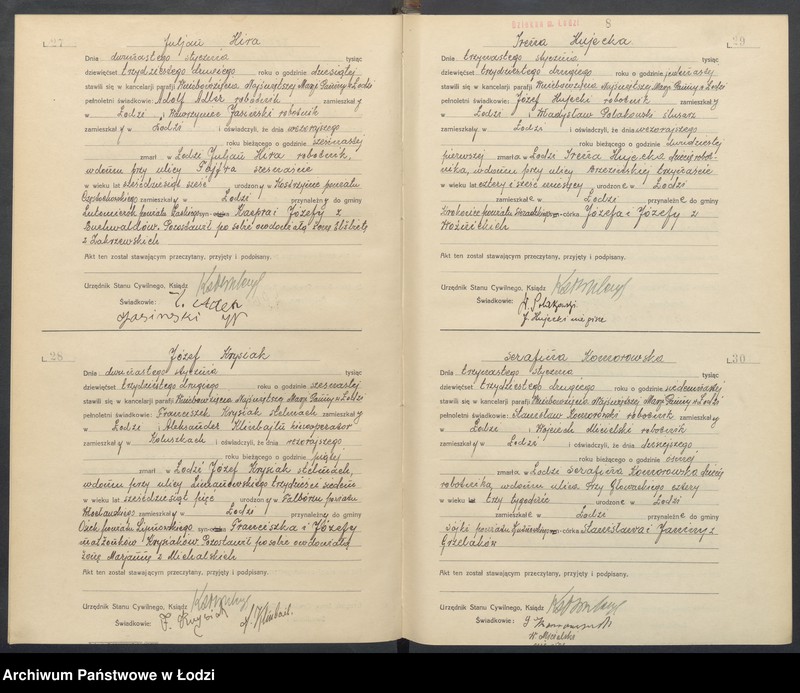 L. 27
Juljan Hira
Dnia dwunastego stycznia tysiąc
dziewięćset trzydziestego drugiego roku o godzinie dziesiątej
stawili się w kancelarji parafji Wniebowzięcia Najświętszej Marji Panny w Łodzi
pełnoletni świadkowie: Adolf Adler robotnik zamieszkały
w Łodzi i Wawrzyniec Jasiński robotnik
zamieszkały w Łodzi i oświadczyli, że dnia wczorajszego
roku bieżącego o godzinie
zmarł w Łodzi Juljan Hira robotnik,
wdomu przy ulicy szesnaście
w wieku lat sześćdziesiąt sześć urodzony w powiatu
Częstochowskiego zamieszkały w Łodzi przynależny do gminy
Lutomiersk powiatu Łaskiego syn Kacpra i Józefy z
Buchwaldów. Pozostawił po sobie owdowiałą żonę Elżbietę
z Zakrzewskich
Akt ten został stawającym przeczytany, przyjęty i podpisany.
Urzędnik Stanu Cywilnego, Ksiądz
Świadkowie:
Jasinski W
L. 28
Józef Krysiak
Dnia dwunastego stycznia tysiąc
dziewięćset trzydziestego drugiego roku o godzinie szesnastej
stawili się w kancelarji parafji Wniebowzięcia Najświętszej Marji Panny w Łodzi
pełnoletni świadkowie: Franciszek Krysiak stelmach zamieszkały
w Łodzi i Aleksander kinooperator
zamieszkały w Koluszkach i oświadczyli, że dnia wczorajszego
roku bieżącego o godzinie piątej
zmarł w Łodzi Józef Krysiak stelmach,
wdomu przy ulicy Limanowskiego trzydzieści siedem
w wieku lat sześćdziesiąt pięć urodzony w powiatu
Włocławskiego zamieszkały w Łodzi przynależny do gminy
powiatu syn Franciszka i Józefy
małżonków Krysiaków. Pozostawił po sobie owdowiałą
żonę Marjannę z Michalskich
Akt ten został stawającym przeczytany, przyjęty i podpisany.
Urzędnik Stanu Cywilnego, Ksiądz
Świadkowie: F. Krysiak
8
L. 29
Irena Kujecka.
Dnia trzynastego stycznia tysiąc
dziewięćset trzydziestego drugiego roku o godzinie jedenastej
stawili się w kancelarji parafji Wniebowzięcia Najświętszej Marji Panny w Łodzi
pełnoletni świadkowie: Józef Kujecki robotnik zamieszkały
w Łodzi i Władysław Polakowski ślusarz
zamieszkały w Łodzi i oświadczyli, że dnia wczorajszego
roku bieżącego o godzinie dwudziestej
pierwszej zmarła w Łodzi Irena Kujecka, dziecię robot-
nika, wdomu przy ulicy Brzezińskiej trzynaście
w wieku lat cztery i sześć miesięcy urodzone w Łodzi
zamieszkałe w Łodzi przynależne do gminy
powiatu Sieradzkiego córka Józefa i Józefy z
Woźnickich
Akt ten został stawającym przeczytany, przyjęty i podpisany.
Urzędnik Stanu Cywilnego, Ksiądz
Świadkowie: W. Polakowski
J. Kujecki nie pisze
L. 30
Serafina Komorowska
Dnia trzynastego stycznia tysiąc
dziewięćset trzydziestego drugiego roku o godzinie siedemnastej
stawili się w kancelarji parafji Wniebowzięcia Najświętszej Marji Panny w Łodzi
pełnoletni świadkowie: Stanisław Komorowski robotnik zamieszkały
w Łodzi i Wojciech Misielski robotnik
zamieszkały w Łodzi i oświadczyli, że dnia dzisiejszego
roku bieżącego o godzinie ósmej
zmarła w Łodzi Serafina Komorowska dziecię
robotnika, wdomu ulica Przy Głowackiego cztery
w wieku lat trzy tygodnie urodzone w Łodzi
zamieszkałe w Łodzi przynależne do gminy
Sójki powiatu Kutnowskiego córka Stanisława i Janiny z
Grzelaków
Akt ten został stawającym przeczytany, przyjęty i podpisany.
Urzędnik Stanu Cywilnego, Ksiądz
Świadkowie:
Archiwum Państwowe w Łodzi